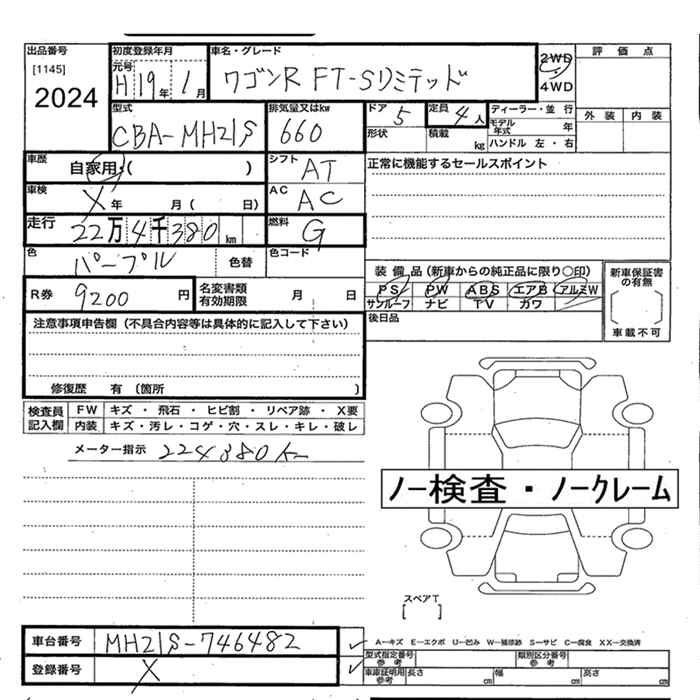 出品番号
[1145]
2024
初度登録年月
元号
H 19年 1月
車名・グレード
ワゴンR FT-Sリミテッド
2WD
・
4WD
評 価 点
外 装 内 装
型式
CBA-MH21S
排気量又はkw
660
ドア
5
定員
4人
形状
積載
kg
ディーラー・並 行
モデル年式 年
ハンドル 左 ・ 右
車歴
自家用・( )
シフト
AT
正常に機能するセールスポイント
車検
X年 月 ( 日)
AC
AC
走行
22万4千380km
燃料
G
色
パープル
色替
色コード
R券
9200円
名変書類有効期限 月 日
装 備 品 (新車からの純正品に限り〇印)
PS PW ABS エアB アルミW
サンルーフ ナビ TV カワ
新車保証書の有無
車載不可
後日品
注意事項申告欄 (不具合内容等は具体的に記入して下さい)
修復歴 有 (箇所 )
検査員記入欄
FW キズ ・ 飛石 ・ ヒビ割 ・ リペア跡 ・ X要
内装 キズ・汚レ・コゲ・穴・スレ・キレ・破レ
メーター指示 224380K
ノー検査・ノークレーム
スペアT
[ ]
車台番号
MH21S-746482
登録番号
X
A－キズ E－エクボ U－凹み W－補修跡 S－サビ C－腐食 XX－交換済
型式指定番号参考
類別区分番号参考
車庫証明用参考 長さ cm 幅 cm 高さ cm